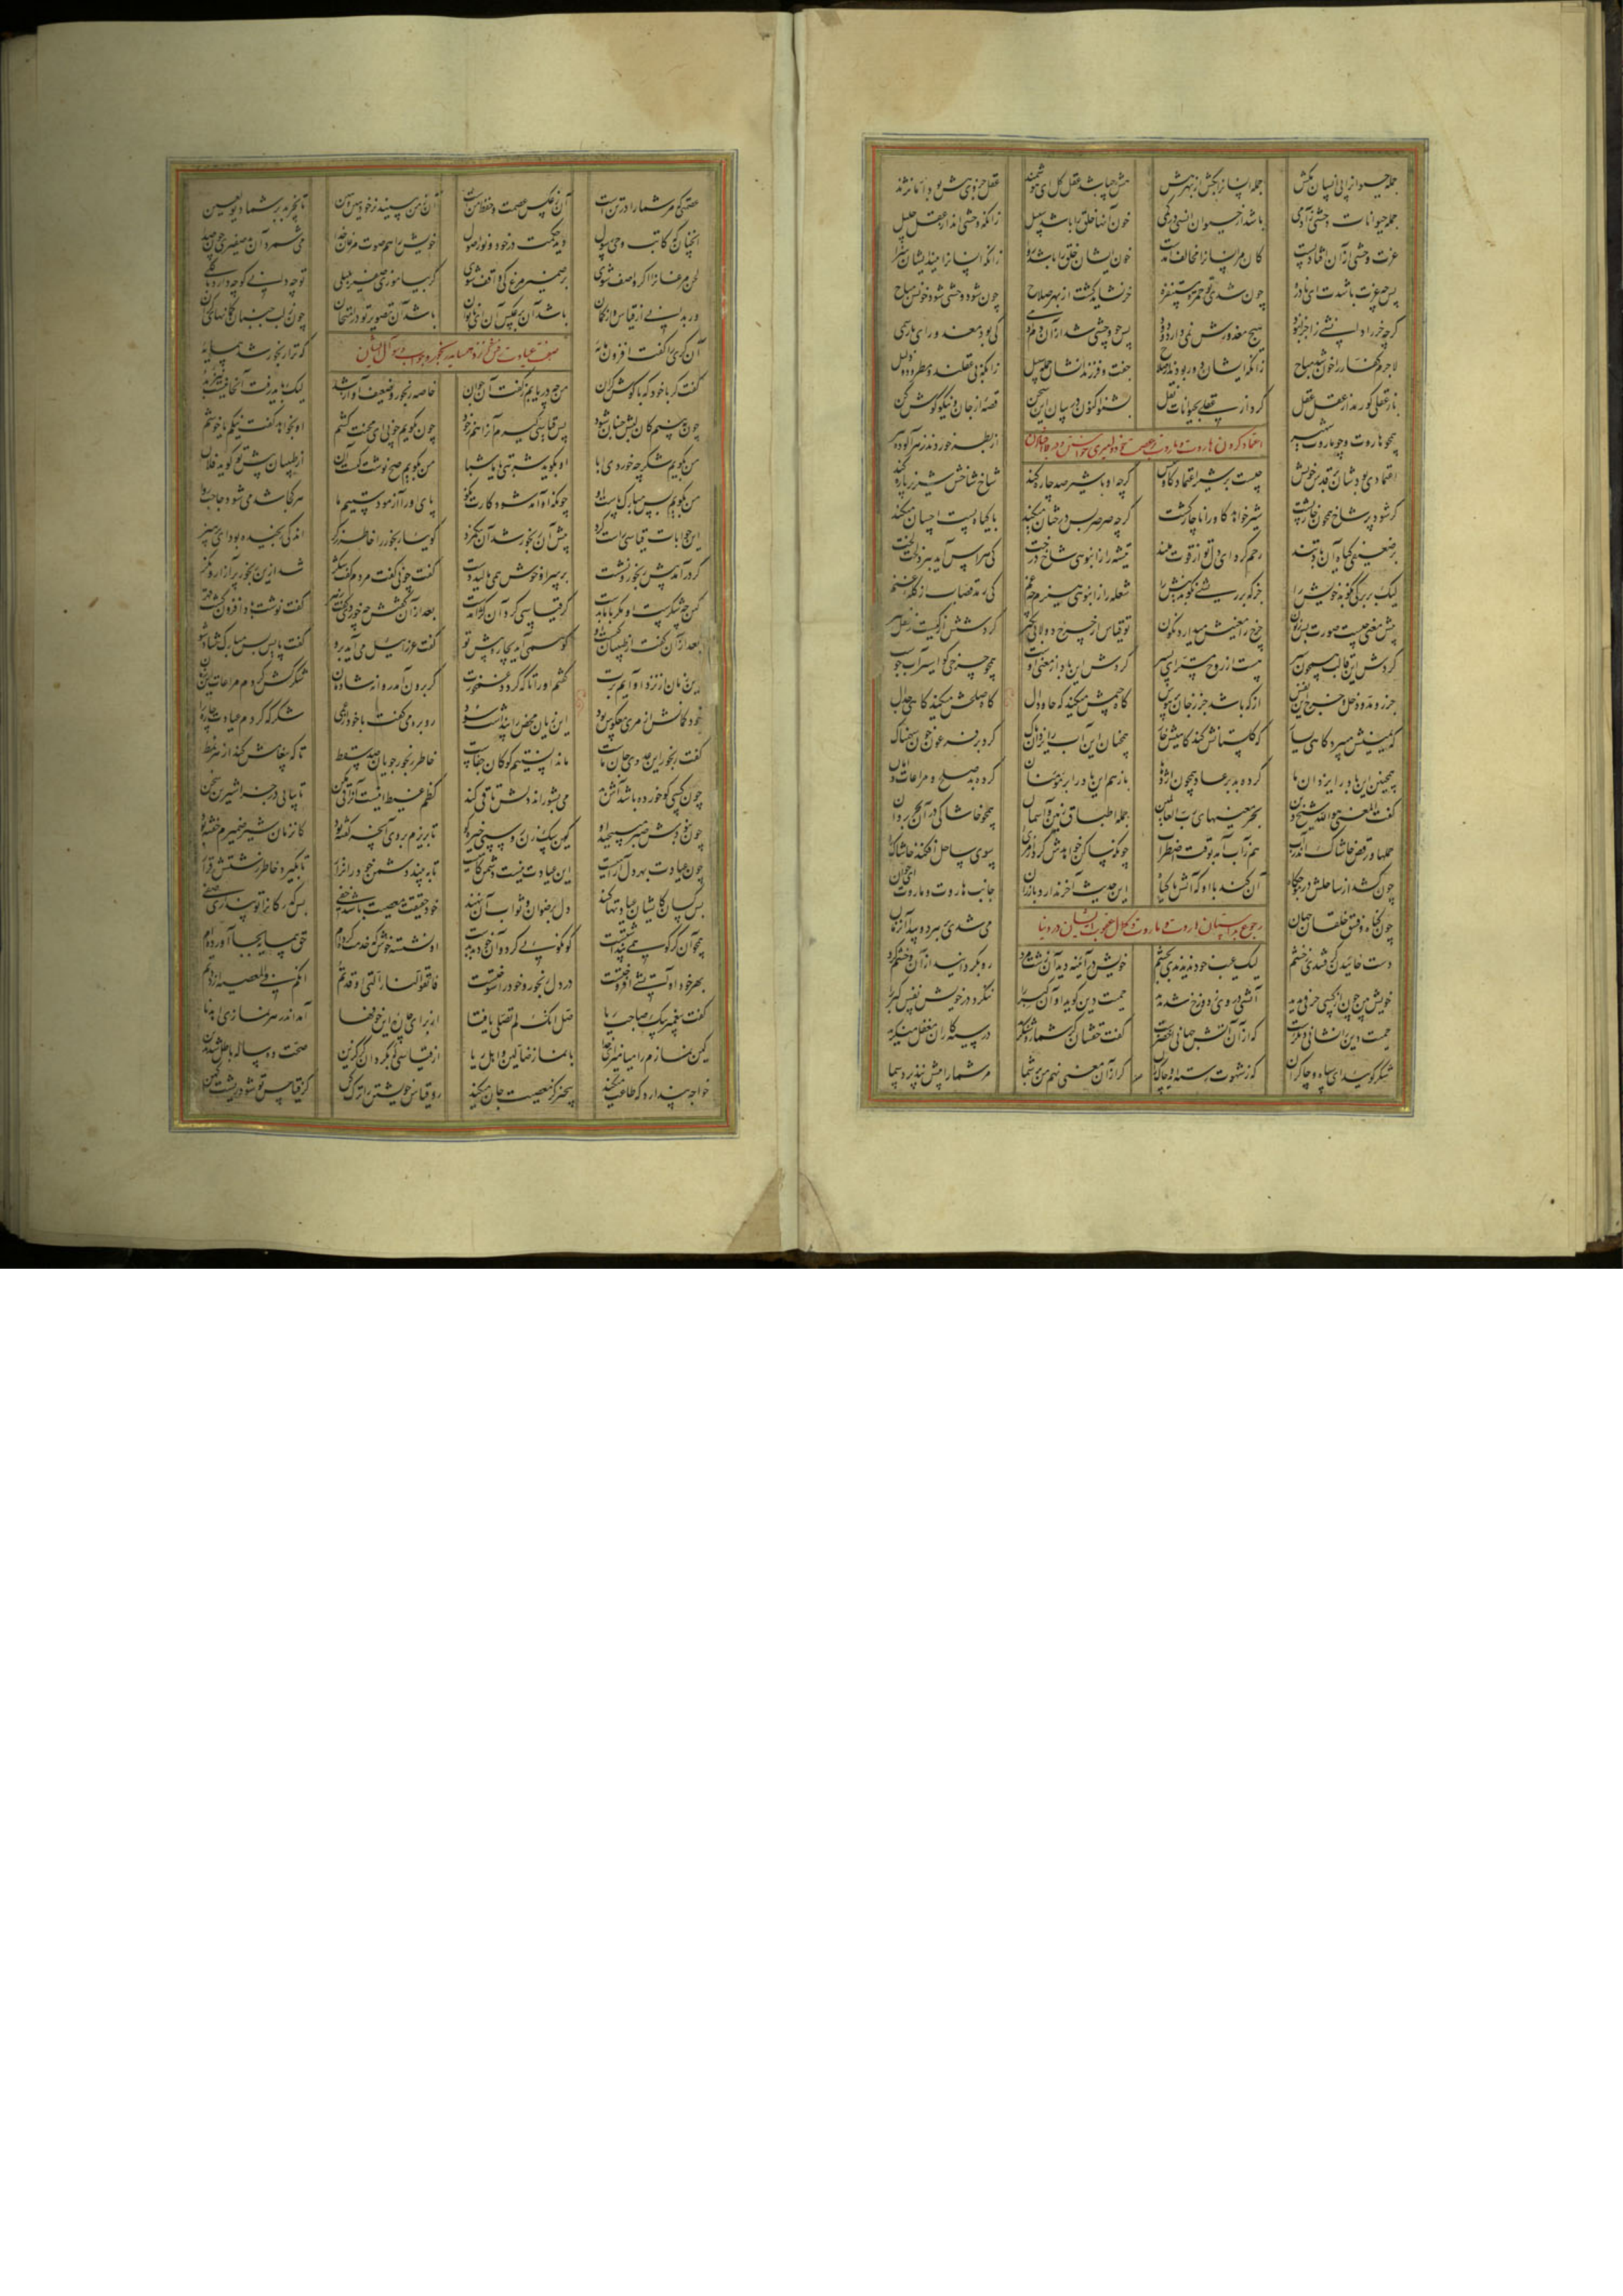 جمله حیوان را پی انسان بکش جمله انسان را بکش از بهر هش هش چه باشد عقل کل ای هوشمند عقل جزوی هش بود اما نژند
جمله حیوانات وحشی ز آدمی باشد از حیوان انسی در کمی خون آنها خلق را باشد سبیل زانکه وحشی اند از عقل جلیل
عزت وحشی از آن افتاد پست کان مر انسان را مخالف آمدست خون ایشان خلق را باشد روا زانکه انسان را نیند ایشان سزا
پس چه عزت باشدت ای نادره چون شدی تو حمر مستنفره خر نشاید کشت از بهر صلاح چون شود وحشی شود خونش مباح
گرچه خر را دانشی زاجر نبود هیچ معذورش نمی دارد ودود پس چو وحشی شد از آن دم آدمی کی بود معذور ای یار سمی
لاجرم کفار را خون شد مباح زانکه ایشان دور بودند از صلاح جفت و فرزندانشان جمله سبیل زانکه بی عقلند و مطرود و ذلیل
باز عقلی کو رمد از عقل عقل گردد از عقلی بحیوانات نقل بشنو اکنون در بیان این سخن قصه از جان و نیکو گوش کن
همچو هاروت و چو ماروت شهیر از بطر خوردند زهر آلوده تیر
اعتماد کردن هاروت و ماروت بر عصمت خود و امیری خواستن و در فتنه افتادن
اعتمادی بودشان بر قدس خویش چیست بر شیر اعتماد گاومیش گرچه او با شیر صد چاره کند شاخ شاخش شیر نر پاره کند
گر شود پر شاخ همچون خارپشت شیر خواهد گاو را ناچار کشت گرچه صرصر بس درختان میکند با گیاه پست احسان میکند
بر ضعیفی گیاه آن باد تند رحم کرد ای دل تو از قوت ملند تیشه را ز انبوهی شاخ درخت کی هراس آید ببرد لخت لخت
لیک بر برگی نکوبد خویش را جز که بر ریشی نکوبد نیش را شعله را ز انبوهی هیزم چه غم کی رمد قصاب از گله غنم
پیش معنی چیست صورت بس زبون چرخ را معنیش میدارد نگون تو قیاس از چرخ دولابی بگیر گردشش از کیست از عقل منیر
گردش این قالب همچون سپر هست از روح مستر ای پسر گردش این باد از معنی اوست همچو چرخی کو اسیر آب جوست
جزر و مد و دخل و خرج این نفس از که باشد جز ز جان پر هوس گاه جیمش میکند گه حا و دال گاه صلحش میکند گاهی جدال
گه یمینش میبرد گاهی یسار گه گلستانش کند گاهیش خار همچنان این آب را یزدان پاک کرد بر فرعون خون سهمناک
همچنین این باد را یزدان ما کرده بد بر عاد همچون اژدها باز هم این باد را بر مؤمنان کرده بد صلح و مراعات و امان
گفت المعنی هو الله شیخ دین بحر معنیهای رب العالمین جمله اطباق زمین و آسمان همچو خاشاکی در آن بحر روان
حملها و رقص خاشاک اندر آب هم ز آب آمد بوقت اضطراب چونکه ساکن خواهدش کرد از مرا سوی ساحل افکند خاشاک را
چون کشد از ساحلش در موجگاه آن کند با او که آتش با گیاه این حدیث آخر ندارد باز ران جانب هاروت و ماروت ای جوان
چون گناه و فسق خلقان جهان می شدی بر هر دو پیدا آن زمان
رجوع بداستان هاروت و ماروت و نکال عقوبت ایشان در دنیا
دست خائیدن گرفتندی ز خشم لیک عیب خود ندیدندی بچشم خویش در آئینه دید آن زشت مرد رو بگردانید از آن و خشم کرد
خویش بین چون از کسی جرمی بدید آتشی در وی ز دوزخ شد پدید حمیت دین گوید او آن کبر را ننگرد در خویش نفس کبر را
حمیت دین را نشانی دیگرست که از آن آتش جهانی اخضرست گفت حقشان گر شما روشنگرید در سیه کاران مغفل منگرید
شکر گوئید ای سپاه و چاکران که ز شهوت رسته اید و چاک ران گر از آن معنی نهم من بر شما مر شما را بیش نپذیرد سما
عصمتی که مر شما را در تن است آن ز عکس عصمت و حفظ من است آن ز من بینید نز خود هین و هین تا نچربد بر شما دیو لعین
آنچنان که کاتب وحی رسول دید حکمت در خود و نور اصول خویش را هم صوت مرغان خدا می شمرد آن صفیری چون صدا
لحن مرغان را اگر واصف شوی بر ضمیر مرغ کی واقف شوی گر بیاموزی صفیر بلبلی تو چه دانی کو چه دارد با گلی
ور بدانی از قیاس و از گمان باشد آن بر عکس آن ای ناتوان باشد آن تصویر تو در امتحان چون ز لب جنبان گمانهای کران
صفت عیادت رفتن کر نزد همسایه رنجور و جواب و سؤال ایشان
آن کری را گفت افزون مایه که ترا رنجور شد همسایه
گفت کر با خود که با گوش گران من چه دریابم ز گفت آن جوان خاصه رنجور و ضعیف آواز شد لیک باید رفت آنجا نیست بد
چون ببینم کان لبش جنبان شود پس قیاسی گیرم آنرا هم ز خود چون بگویم چونی ای محنت کشم او بخواهد گفت نیکم یا خوشم
من بگویم شکر چه خوردی ابا او بگوید شربتی یا ماشبا من بگویم صح نوشت کیست آن از طبیبان پیش تو گوید فلان
من بگویم بس مبارک پاست او چونکه او آمد شود کارت نکو پای او را آزمودستیم ما هر کجا شد می شود حاجت روا
این جوابات قیاسی راست کرد پیش آن رنجور شد آن نیک مرد
کر درآمد پیش رنجور و نشست بر سر او خوش همی مالید دست گفت چونی گفت مردم گفت شکر شد ازین رنجور پر آزار و نکر
کین چه شکرست او مگر با ما بدست کر قیاسی کرد و آن کژ آمدست بعد از آن گفتش چه خوردی گفت زهر گفت نوشت باد افزون گشت قهر
بعد از آن گفت از طبیبان کیست او کو همی آید بچاره پیش تو گفت عزرائیل می آید برو گفت پایش بس مبارک شاد شو
این زمان از نزد او آیم برت گفتم او را تا که گردد غمخورت کر برون آمد روانه شادمان شکرش کردم مراعات این زمان
خود گمانش از کری معکوس بود این زیان محض را پنداشت سود رو بره می گفت با خود او عمی شکر که کردم عیادت جار را
گفت رنجور این عدوی جان ماست ما ندانستیم کو کان جفاست خاطر رنجور جویان صد سقط تا که پیغامش کند از هر نمط
چون کسی کو خورده باشد آش بد می بشوراند دلش تا قی کند کظم غیظ اینست آنرا قی مکن تا بیابی در جزا شیرین سخن
چون نبودش صبر می پیچید او کین سگ زن روسپی حیز کو تا بریزم بر وی آنچه گفته بود کان زمان شیر ضمیرم خفته بود
چون عیادت بهر دل آرامیست این عیادت نیست دشمن کامیست تا به بیند دشمن خود را نزار تا بگیرد خاطر زشتش قرار
بس کسان کایشان عبادتها کنند دل برضوان و ثواب آن نهند خود حقیقت معصیت باشد خفی بس کدر کانرا تو پنداری صفی
همچو آن کر کو همی پنداشتست کو نکوئی کرد و آن خود بد بدست او نشسته خوش که خدمت کرده ام حق همسایه بجا آورده ام
بهر خود او آتشی افروختست در دل رنجور و خود را سوختست فاتقوا النار التی اوقدتم انکم فی المعصیة ازددتم
گفت پیغمبر بیک صاحب ریا صل انک لم تصل یا فتی از برای چاره این خوفها آمد اندر هر نمازی اهدنا
کین نمازم را میامیز ای خدا با نماز ضالین و اهل ریا از قیاسی که بکرد آن کر گزین صحبت ده ساله باطل شد بدین
خواجه پندارد که طاعت میکند بیخبر کز معصیت جان میکند رو قیاس خویشتن را ترک کن کز قیاس تو شود ریشت کهن